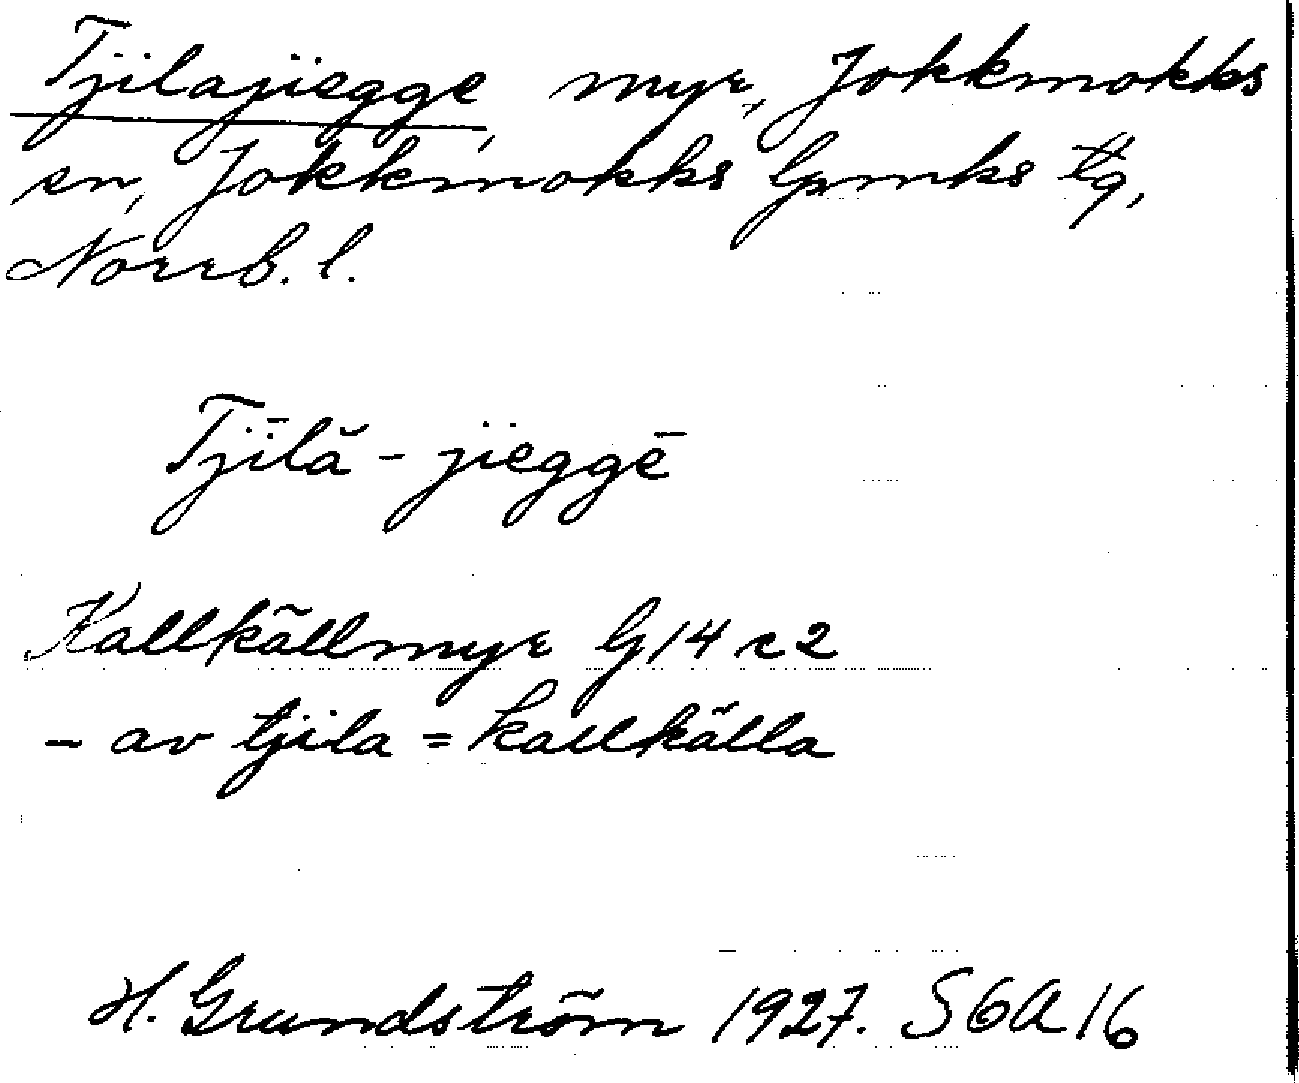 Tjilajiegge, myr, Jokkmokks
sn, Jokkmokks lpmks tg,
Norrb. l.
Tjīlă - jieggē
Kallkällmyr G14 c2
- av tjila = kallkälla
H. Grundström 1927. S6A16